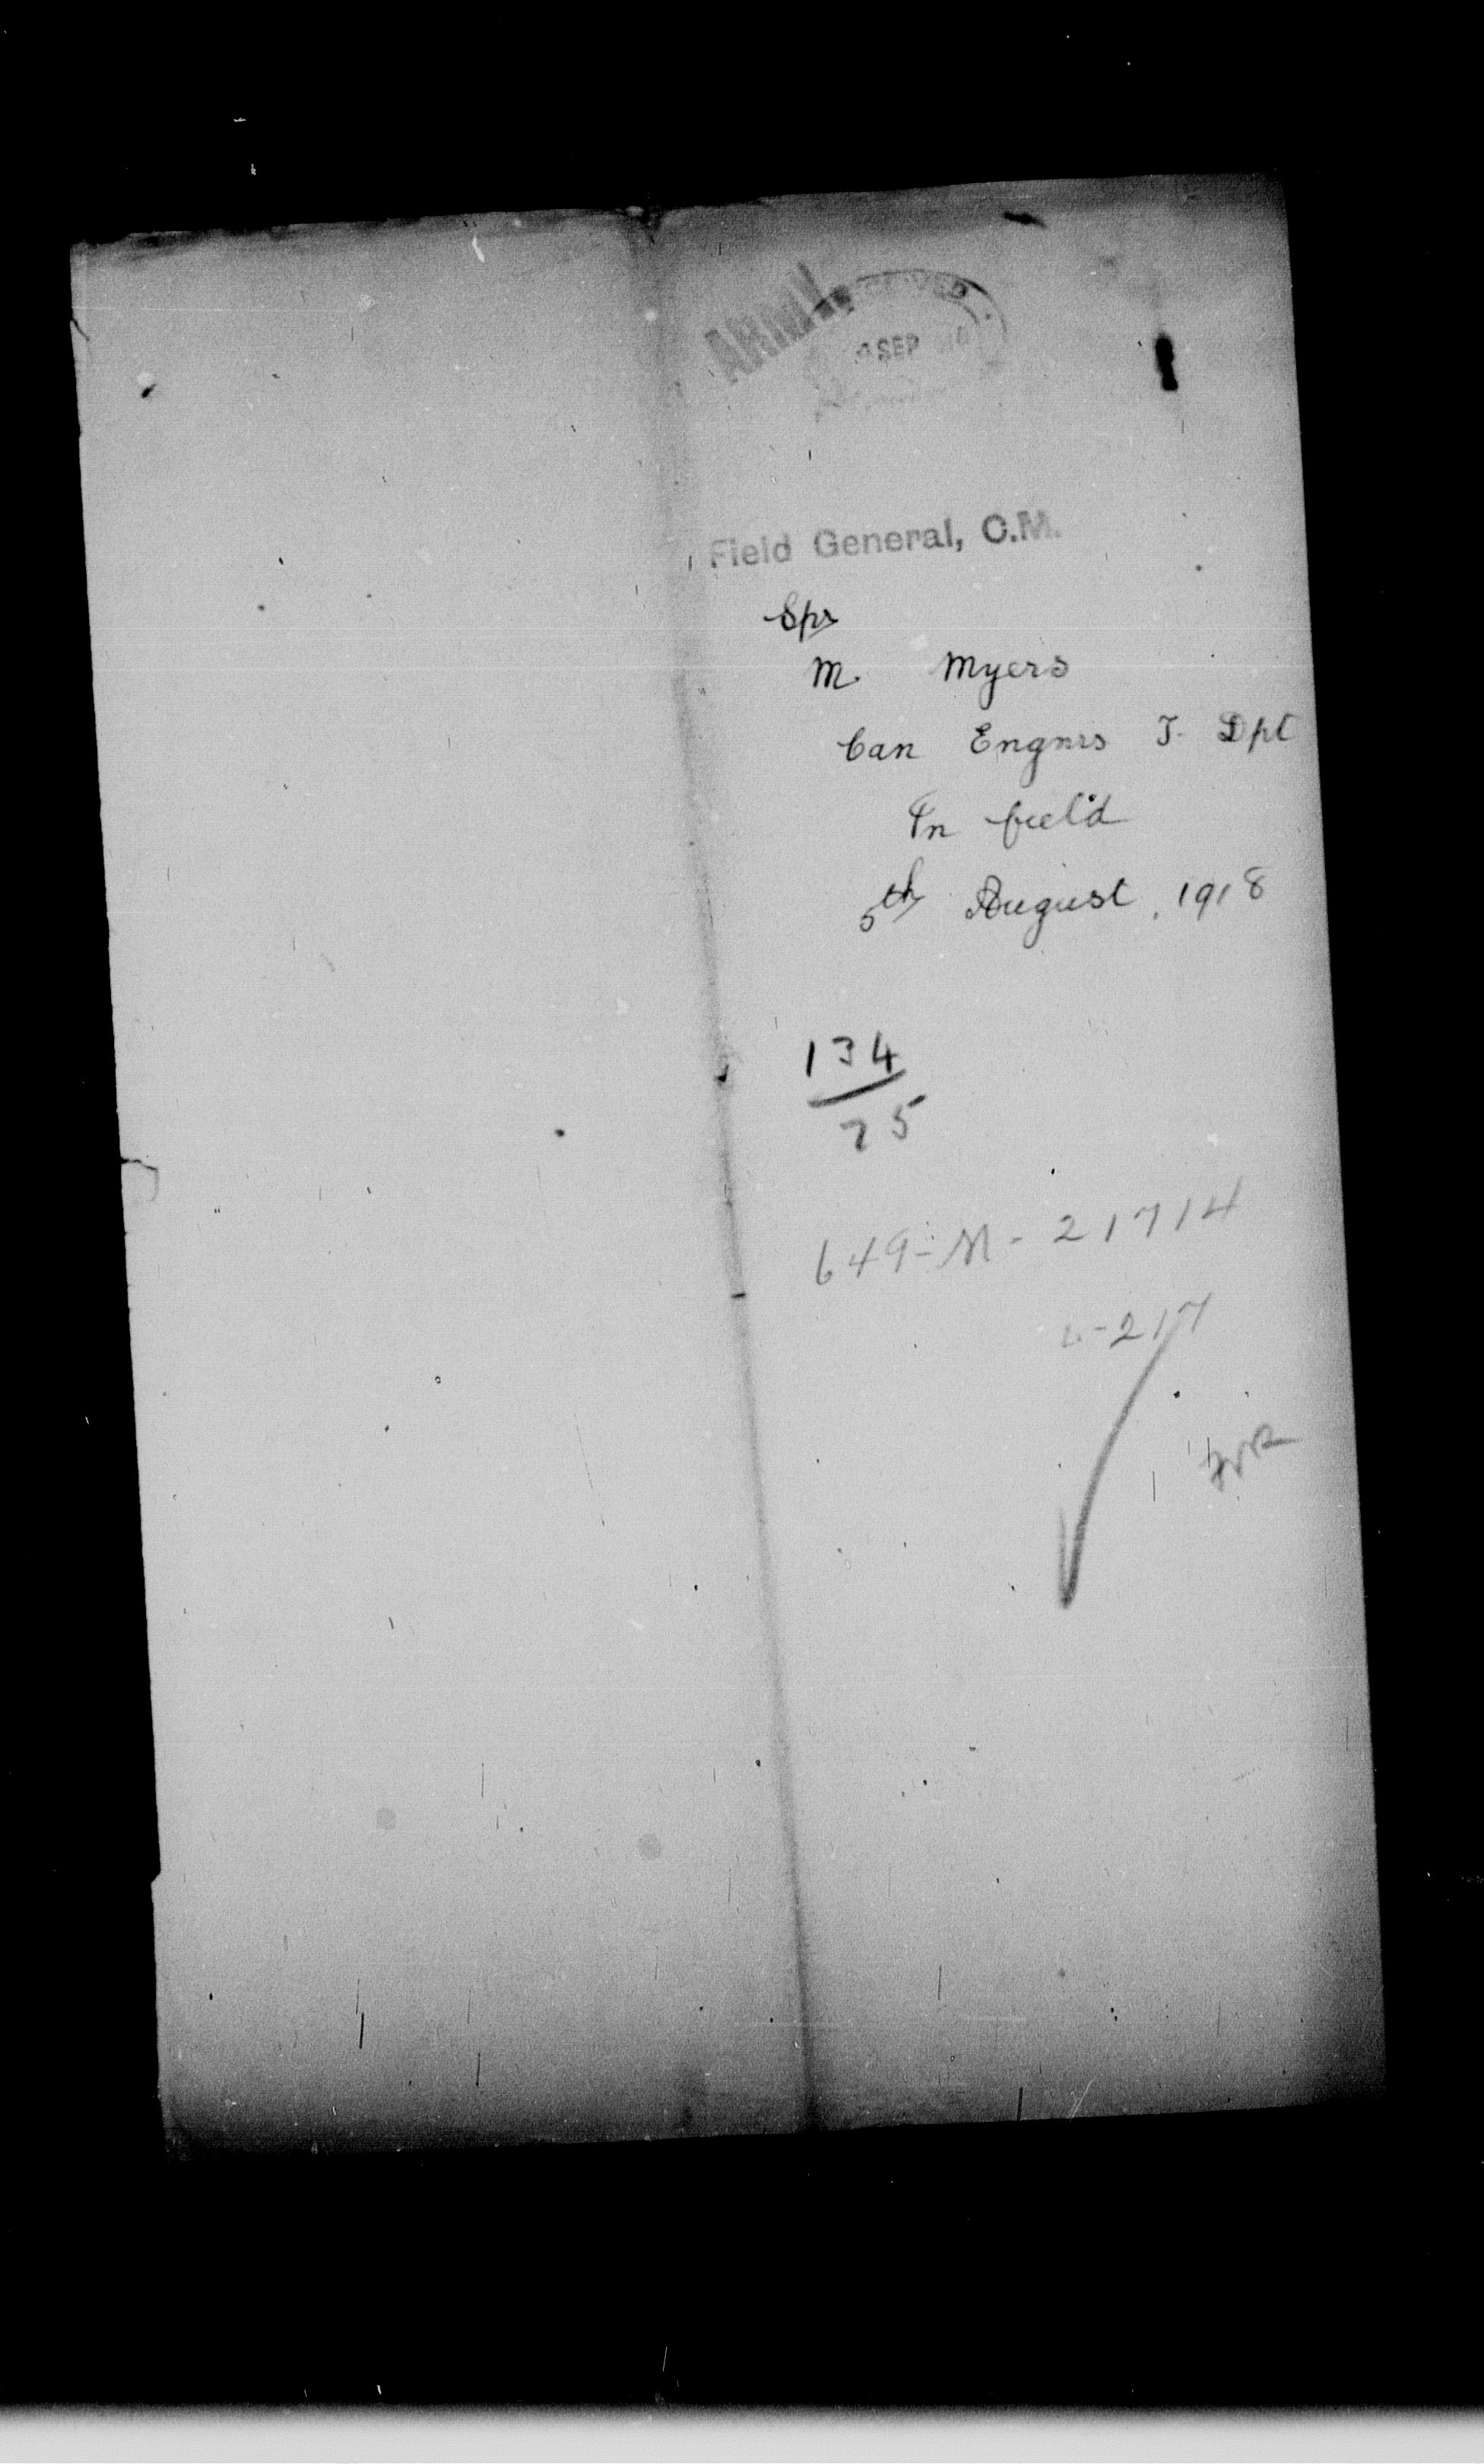 ARMY
RECEIVED
SEP
Field General, C.M.
Spr
M. Myers
Can Engnrs T. Dpt
In field
5th August, 1918
134
75
649-M-21714